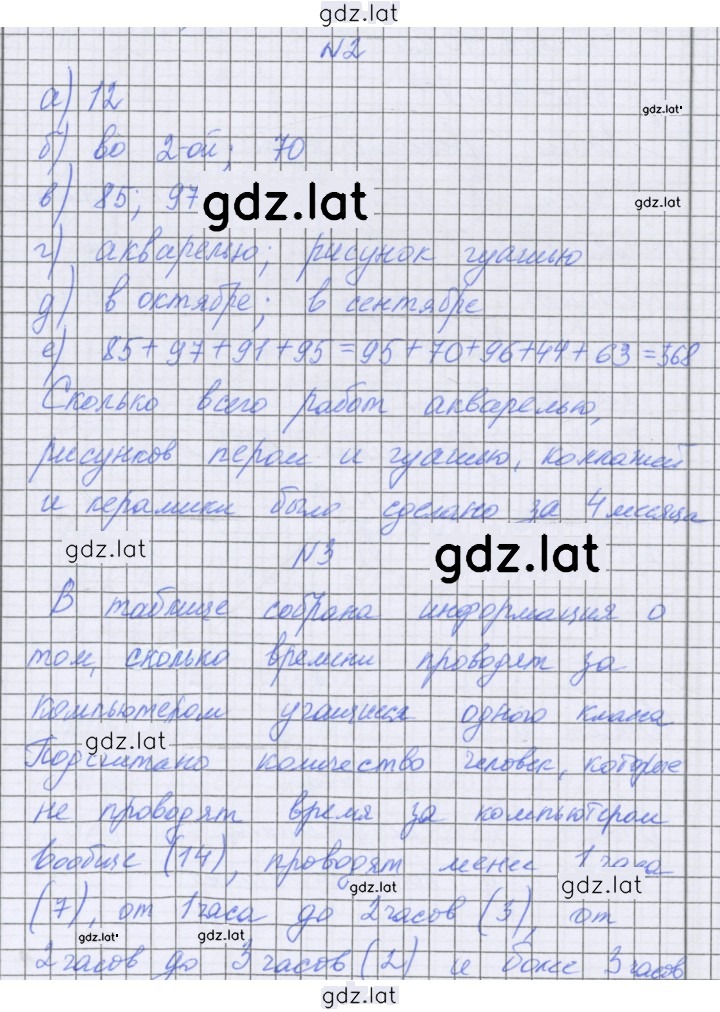 gdz.lat
№2
а) 12
gdz.lat
б) во 2-ой; 70
в) 85; 97
gdz.lat
gdz.lat
г) акварелью; рисунок гуашью
д) в октябре; в сентябре
е) 85+97+91+95=95+70+96+44+63=368
Сколько всего работ акварелью,
рисунков пером и гуашью, коллажей
и керамики было сделано за 4 месяца
gdz.lat
№3
gdz.lat
В таблице собрана информация о
том, сколько времени проводят за
компьютером учащиеся одного класса
gdz.lat
Подсчитано количество человек, которые
не проводят время за компьютером
вообще (14), проводят менее 1 часа
gdz.lat
gdz.lat
(7), от 1 часа до 2 часов (3), от
gdz.lat
gdz.lat
2 часов до 3 часов (2) и более 3 часов
gdz.lat